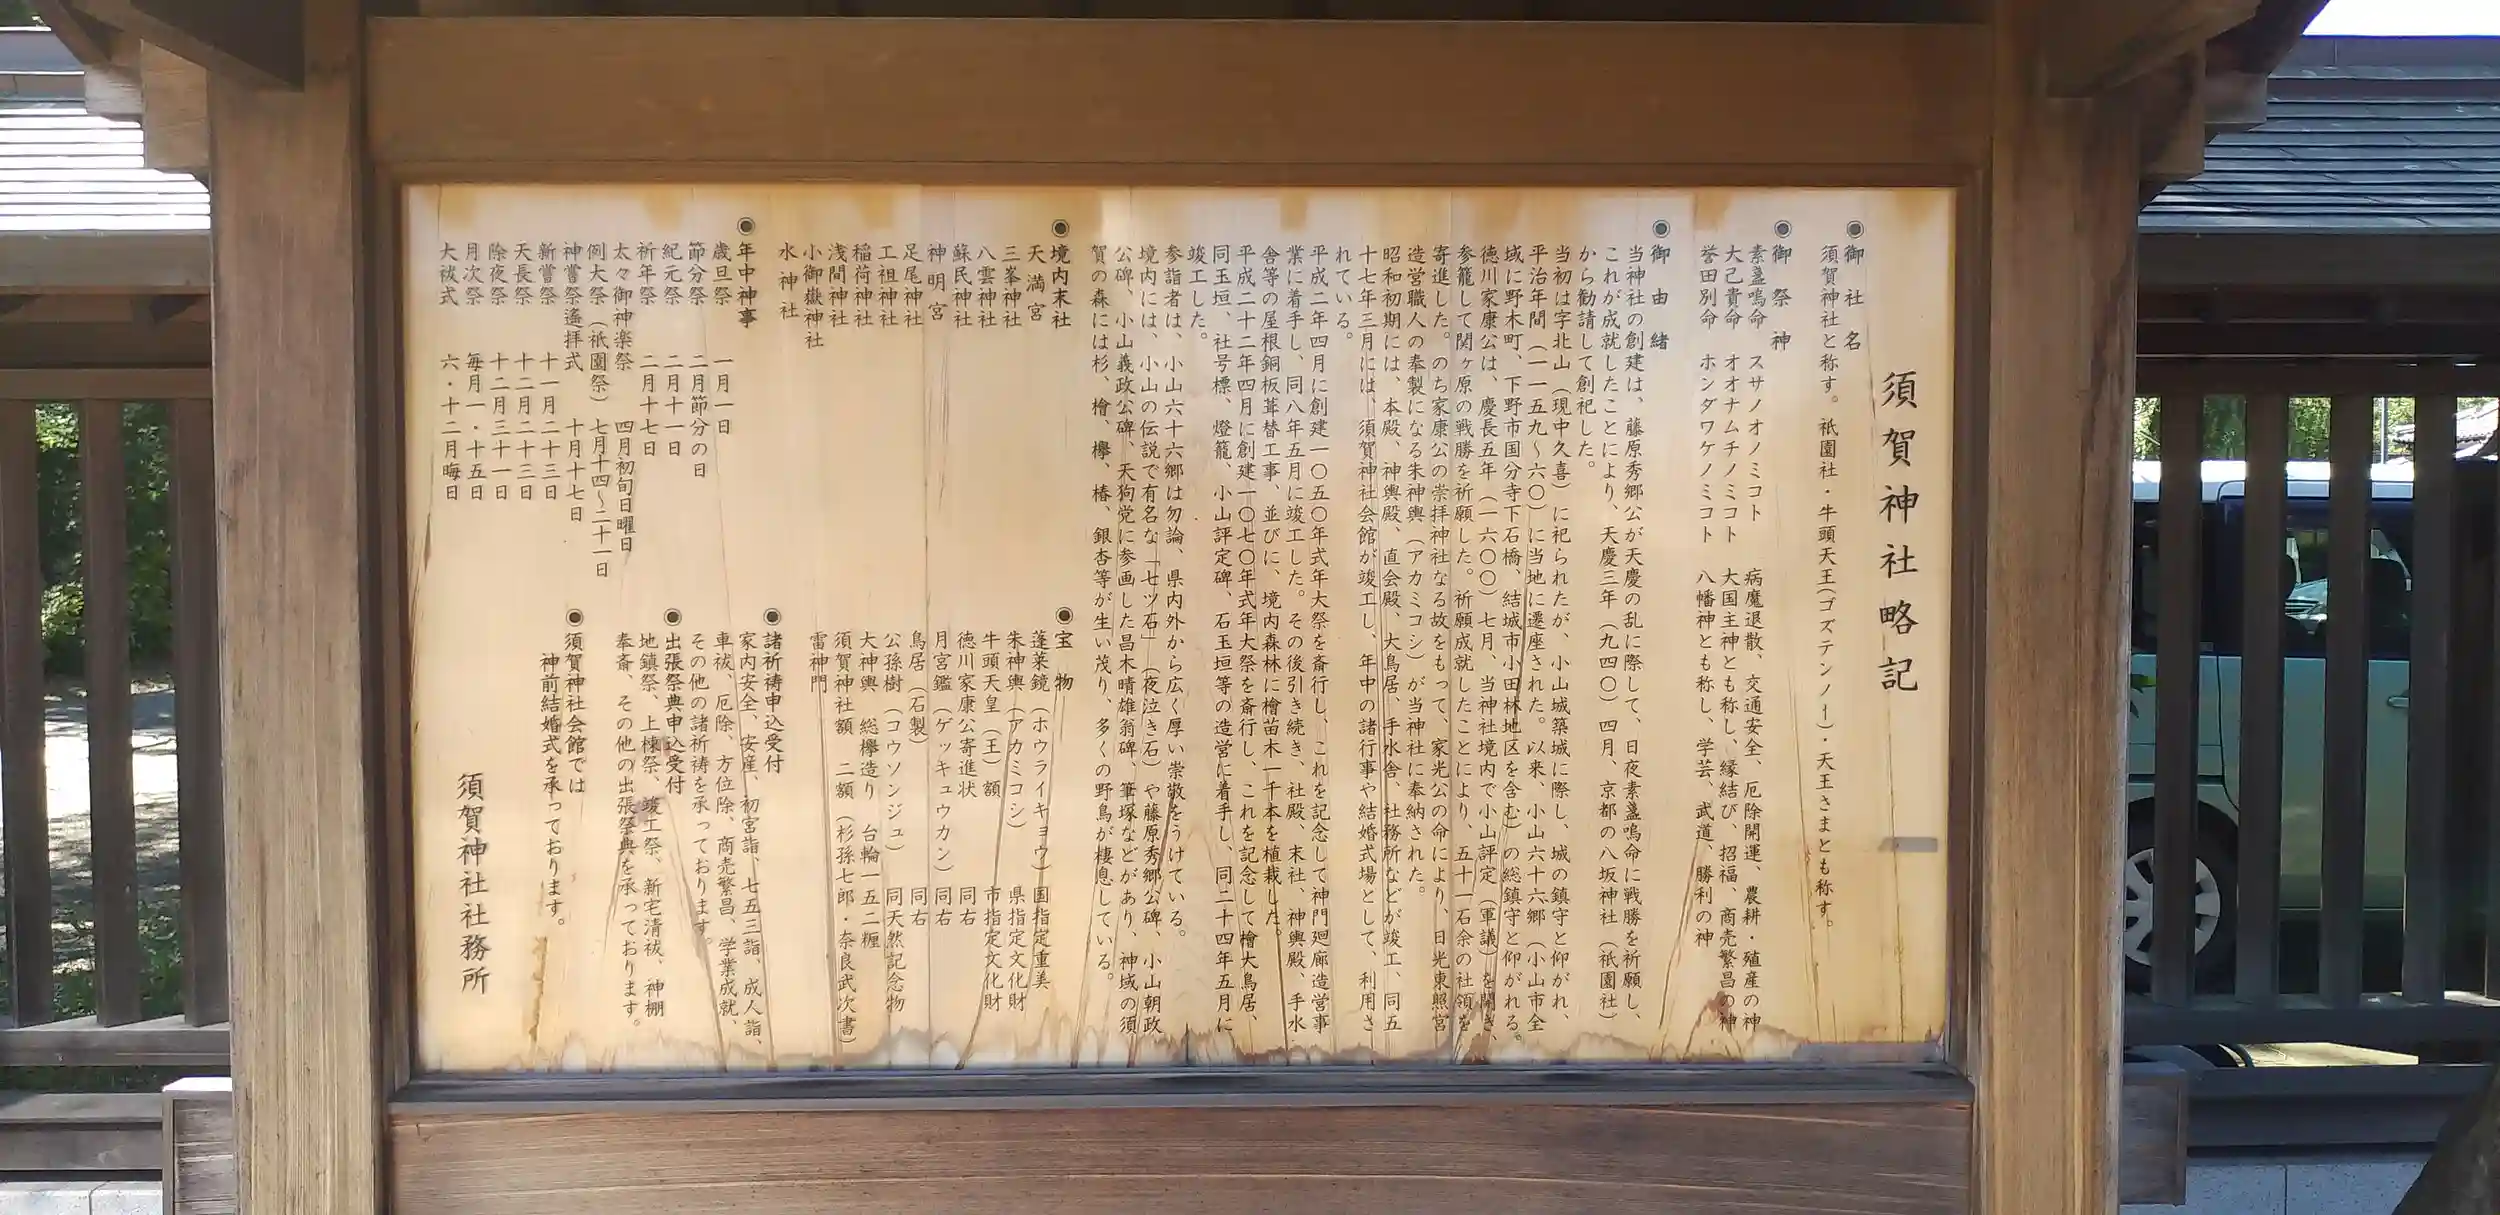 須賀神社略記
◉御社名
須賀神社と称す。祇園社・牛頭天王(ゴズテンノー)・天王さまとも称す。
◉御祭神
素盞嗚命 スサノオノミコト 病魔退散、交通安全、厄除開運、農耕・殖産の神
大己貴命 オオナムチノミコト 大国主神とも称し、縁結び、招福、商売繁昌の神
誉田別命 ホンダワケノミコト 八幡神とも称し、学芸、武道、勝利の神
◉御由緒
当神社の創建は、藤原秀郷公が天慶の乱に際して、日夜素盞嗚命に戦勝を祈願し、
これが成就したことにより、天慶三年(九四〇)四月、京都の八坂神社(祇園社)
から勧請して創祀した。
当初は字北山(現中久喜)に祀られたが、小山城築城に際し、城の鎮守と仰がれ、
平治年間(一一五九〜六〇)に当地に遷座された。以来、小山六十六郷(小山市全
域に野木町、下野市国分寺下石橋、結城市小田林地区を含む)の総鎮守と仰がれる。
徳川家康公は、慶長五年(一六〇〇)七月、当神社境内で小山評定(軍議)を開き、
参籠して関ヶ原の戦勝を祈願した。祈願成就したことにより、五十一石余の社領を
寄進した。のち家康公の崇拝神社なる故をもって、家光公の命により、日光東照宮
造営職人の奉製になる朱神輿(アカミコシ)が当神社に奉納された。
昭和初期には、本殿、神輿殿、直会殿、大鳥居、手水舎、社務所などが竣工、同五
十七年三月には、須賀神社会館が竣工し、年中の諸行事や結婚式場として、利用さ
れている。
平成二年四月に創建一〇五〇年式年大祭を斎行し、これを記念して神門廻廊造営事
業に着手し、同八年五月に竣工した。その後引き続き、社殿、末社、神輿殿、手水
舎等の屋根銅板葺替工事、並びに、境内森林に檜苗木一千本を植栽した。
平成二十二年四月に創建一〇七〇年式年大祭を斎行し、これを記念して檜大鳥居、
同玉垣、社号標、燈籠、小山評定碑、石玉垣等の造営に着手し、同二十四年五月に
竣工した。
参詣者は、小山六十六郷は勿論、県内外から広く厚い崇敬をうけている。
境内には、小山の伝説で有名な「七ツ石」(夜泣き石)や藤原秀郷公碑、小山朝政
公碑、小山義政公碑、天狗党に参画した昌木晴雄翁碑、筆塚などがあり、神域の須
賀の森には杉、檜、欅、椿、銀杏等が生い茂り、多くの野鳥が棲息している。
◉境内末社
天満宮
三峯神社
八雲神社
蘇民神社
神明宮
足尾神社
工祖神社
稲荷神社
浅間神社
小御嶽神社
水神社
◉宝物
蓬莱鏡(ホウライキョウ) 国指定重美
朱神輿(アカミコシ) 県指定文化財
牛頭天皇(王)額 市指定文化財
徳川家康公寄進状 同右
月宮鑑(ゲッキュウカン) 同右
鳥居(石製) 同右
公孫樹(コウソンジュ) 同天然記念物
大神輿 総欅造り 台輪一五二糎
須賀神社額 二額(杉孫七郎・奈良武次書)
雷神門
◉年中神事
歳旦祭 一月一日
節分祭 二月節分の日
紀元祭 二月十一日
祈年祭 二月十七日
太々御神楽祭 四月初旬日曜日
例大祭(祇園祭) 七月十四〜二十一日
神嘗祭遙拝式 十月十七日
新嘗祭 十一月二十三日
天長祭 十二月二十三日
除夜祭 十二月三十一日
月次祭 毎月一・十五日
大祓式 六・十二月晦日
◉諸祈祷申込受付
家内安全、安産、初宮詣、七五三詣、成人詣、
車祓、厄除、方位除、商売繁昌、学業成就、
その他の諸祈祷を承っております。
◉出張祭典申込受付
地鎮祭、上棟祭、竣工祭、新宅清祓、神棚
奉斎、その他の出張祭典を承っております。
◉須賀神社会館では
神前結婚式を承っております。
須賀神社社務所